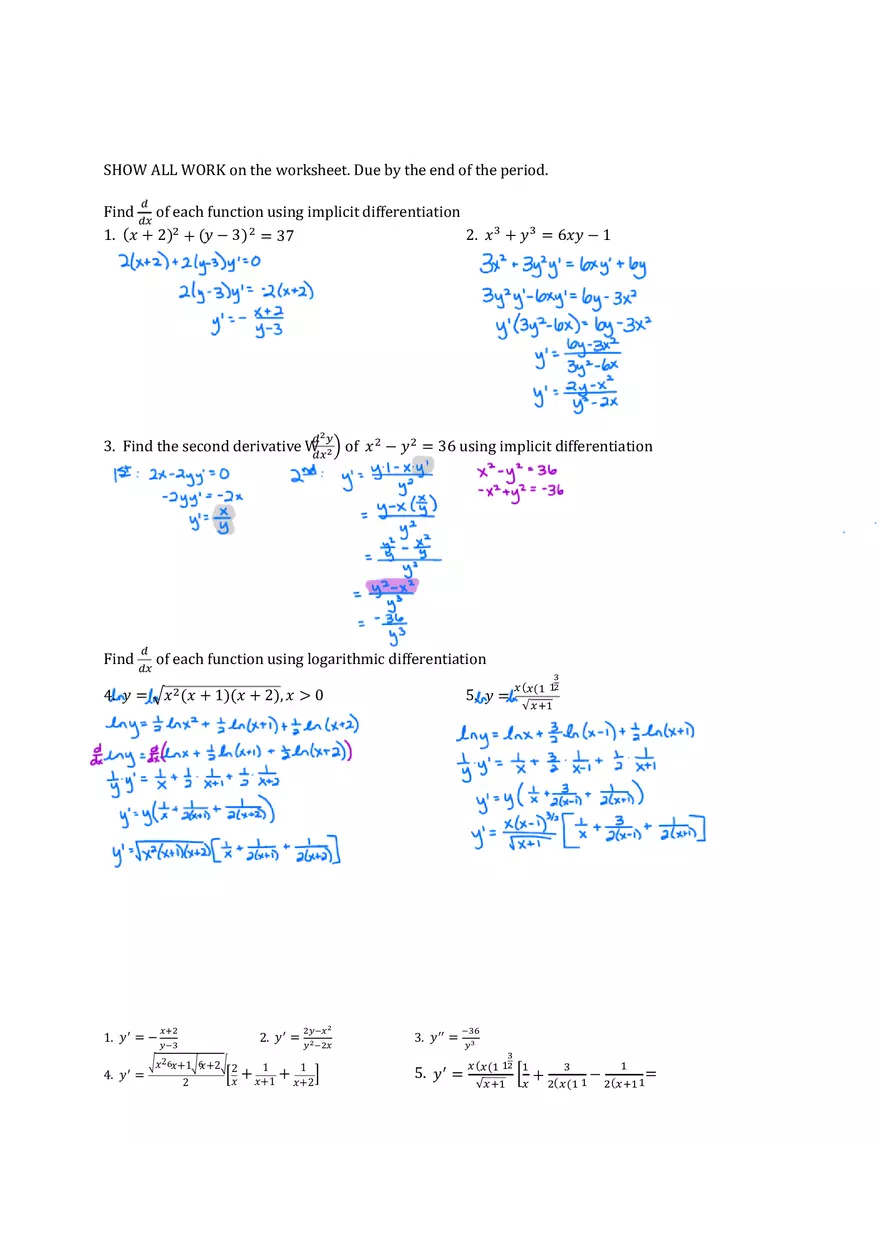 SHOW ALL WORK on the worksheet. Due by the end of the period.
Find d/dx of each function using implicit differentiation
1. (x + 2)² + (y − 3)² = 37
2(x+2) + 2(y-3)y' = 0
2(y-3)y' = -2(x+2)
y' = - (x+2)/(y-3)
2. x³ + y³ = 6xy − 1
3x² + 3y²y' = 6xy' + 6y
3y²y' - 6xy' = 6y - 3x²
y'(3y²-6x) = 6y - 3x²
y' = (6y-3x²)/(3y²-6x)
y' = (2y-x²)/(y²-2x)
3. Find the second derivative (d²y/dx²) of x² − y² = 36 using implicit differentiation
1st: 2x - 2yy' = 0
-2yy' = -2x
y' = x/y
2nd: y' = (y·1 - x·y')/y²
= (y - x(x/y))/y²
= (y²/y - x²/y)/y²
= (y² - x²)/y³
= -36/y³
x² - y² = 36
-x² + y² = -36
Find d/dx of each function using logarithmic differentiation
4. ln y = ln √(x²(x + 1)(x + 2)), x > 0
ln y = ½ ln x² + ½ ln(x+1) + ½ ln(x+2)
d/dx ln y = d/dx (ln x + ½ ln(x+1) + ½ ln(x+2))
1/y · y' = 1/x + ½ · 1/(x+1) + ½ · 1/(x+2)
y' = y(1/x + 1/2(x+1) + 1/2(x+2))
y' = √(x²(x+1)(x+2)) [1/x + 1/2(x+1) + 1/2(x+2)]
5. ln y = ln x(x(1 1 3/2 / √x+1
ln y = ln x + 3/2 ln(x-1) + ½ ln(x+1)
1/y · y' = 1/x + 3/2 · 1/(x-1) + ½ · 1/(x+1)
y' = y(1/x + 3/2(x-1) + 1/2(x+1))
y' = x(x-1)^3/2 / √x+1 [1/x + 3/2(x-1) + 1/2(x+1)]
1. y′ = − (x+2)/(y−3)
2. y′ = (2y−x²)/(y²−2x)
3. y″ = −36/y³
4. y′ = √x²6x+1√6x+2√ / 2 [2/x + 1/(x+1) + 1/(x+2)]
5. y′ = x(x(1 1 3/2 / √x+1 [1/x + 3/2(x(1 1 − 1/2(x+1 1 =